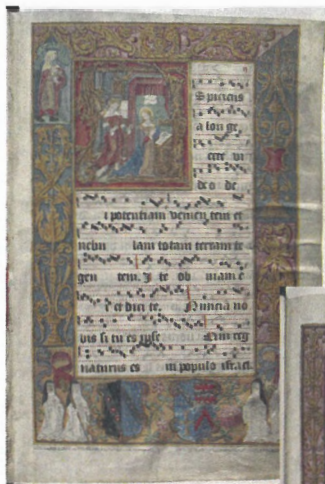 Spiciens
a lon ge
ecce vi
deo de
i potentiam venien tem et
nebu lam totam terram te
gen tem. I te ob viam e
i et dici te. Nuncia no
bis si tu es ipse
naturus es in populo israel